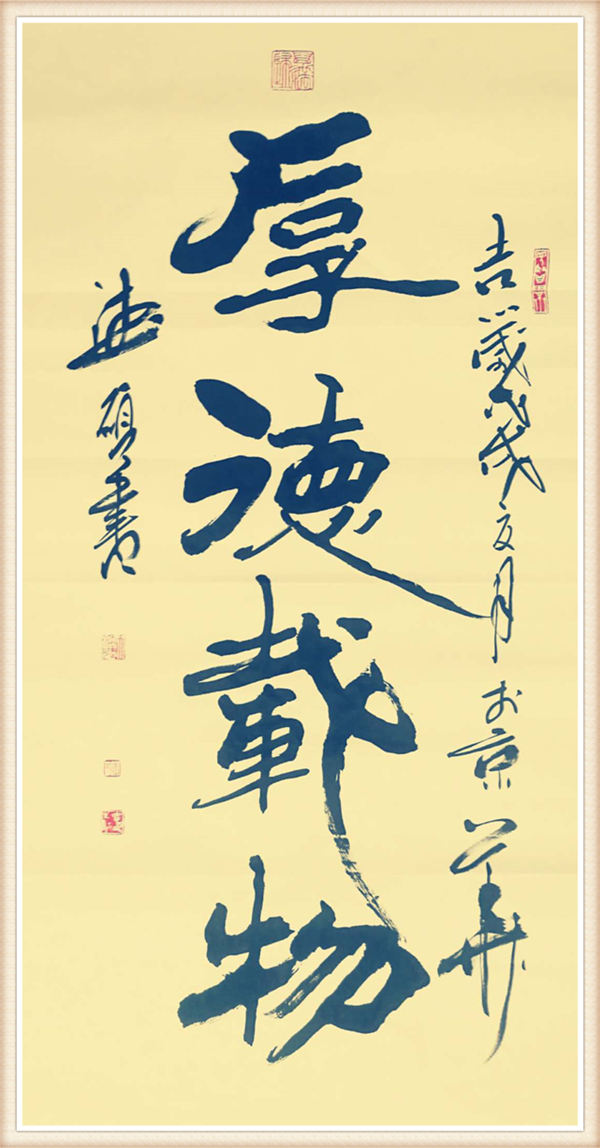 吉歲戊戌夏月於京華
厚德載物
碩書